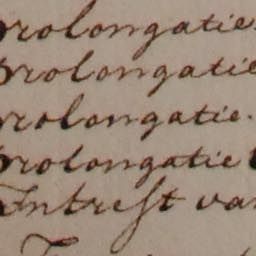 prolongatie.
prolongatie
prolongatie.
prolongatie
Intrest van